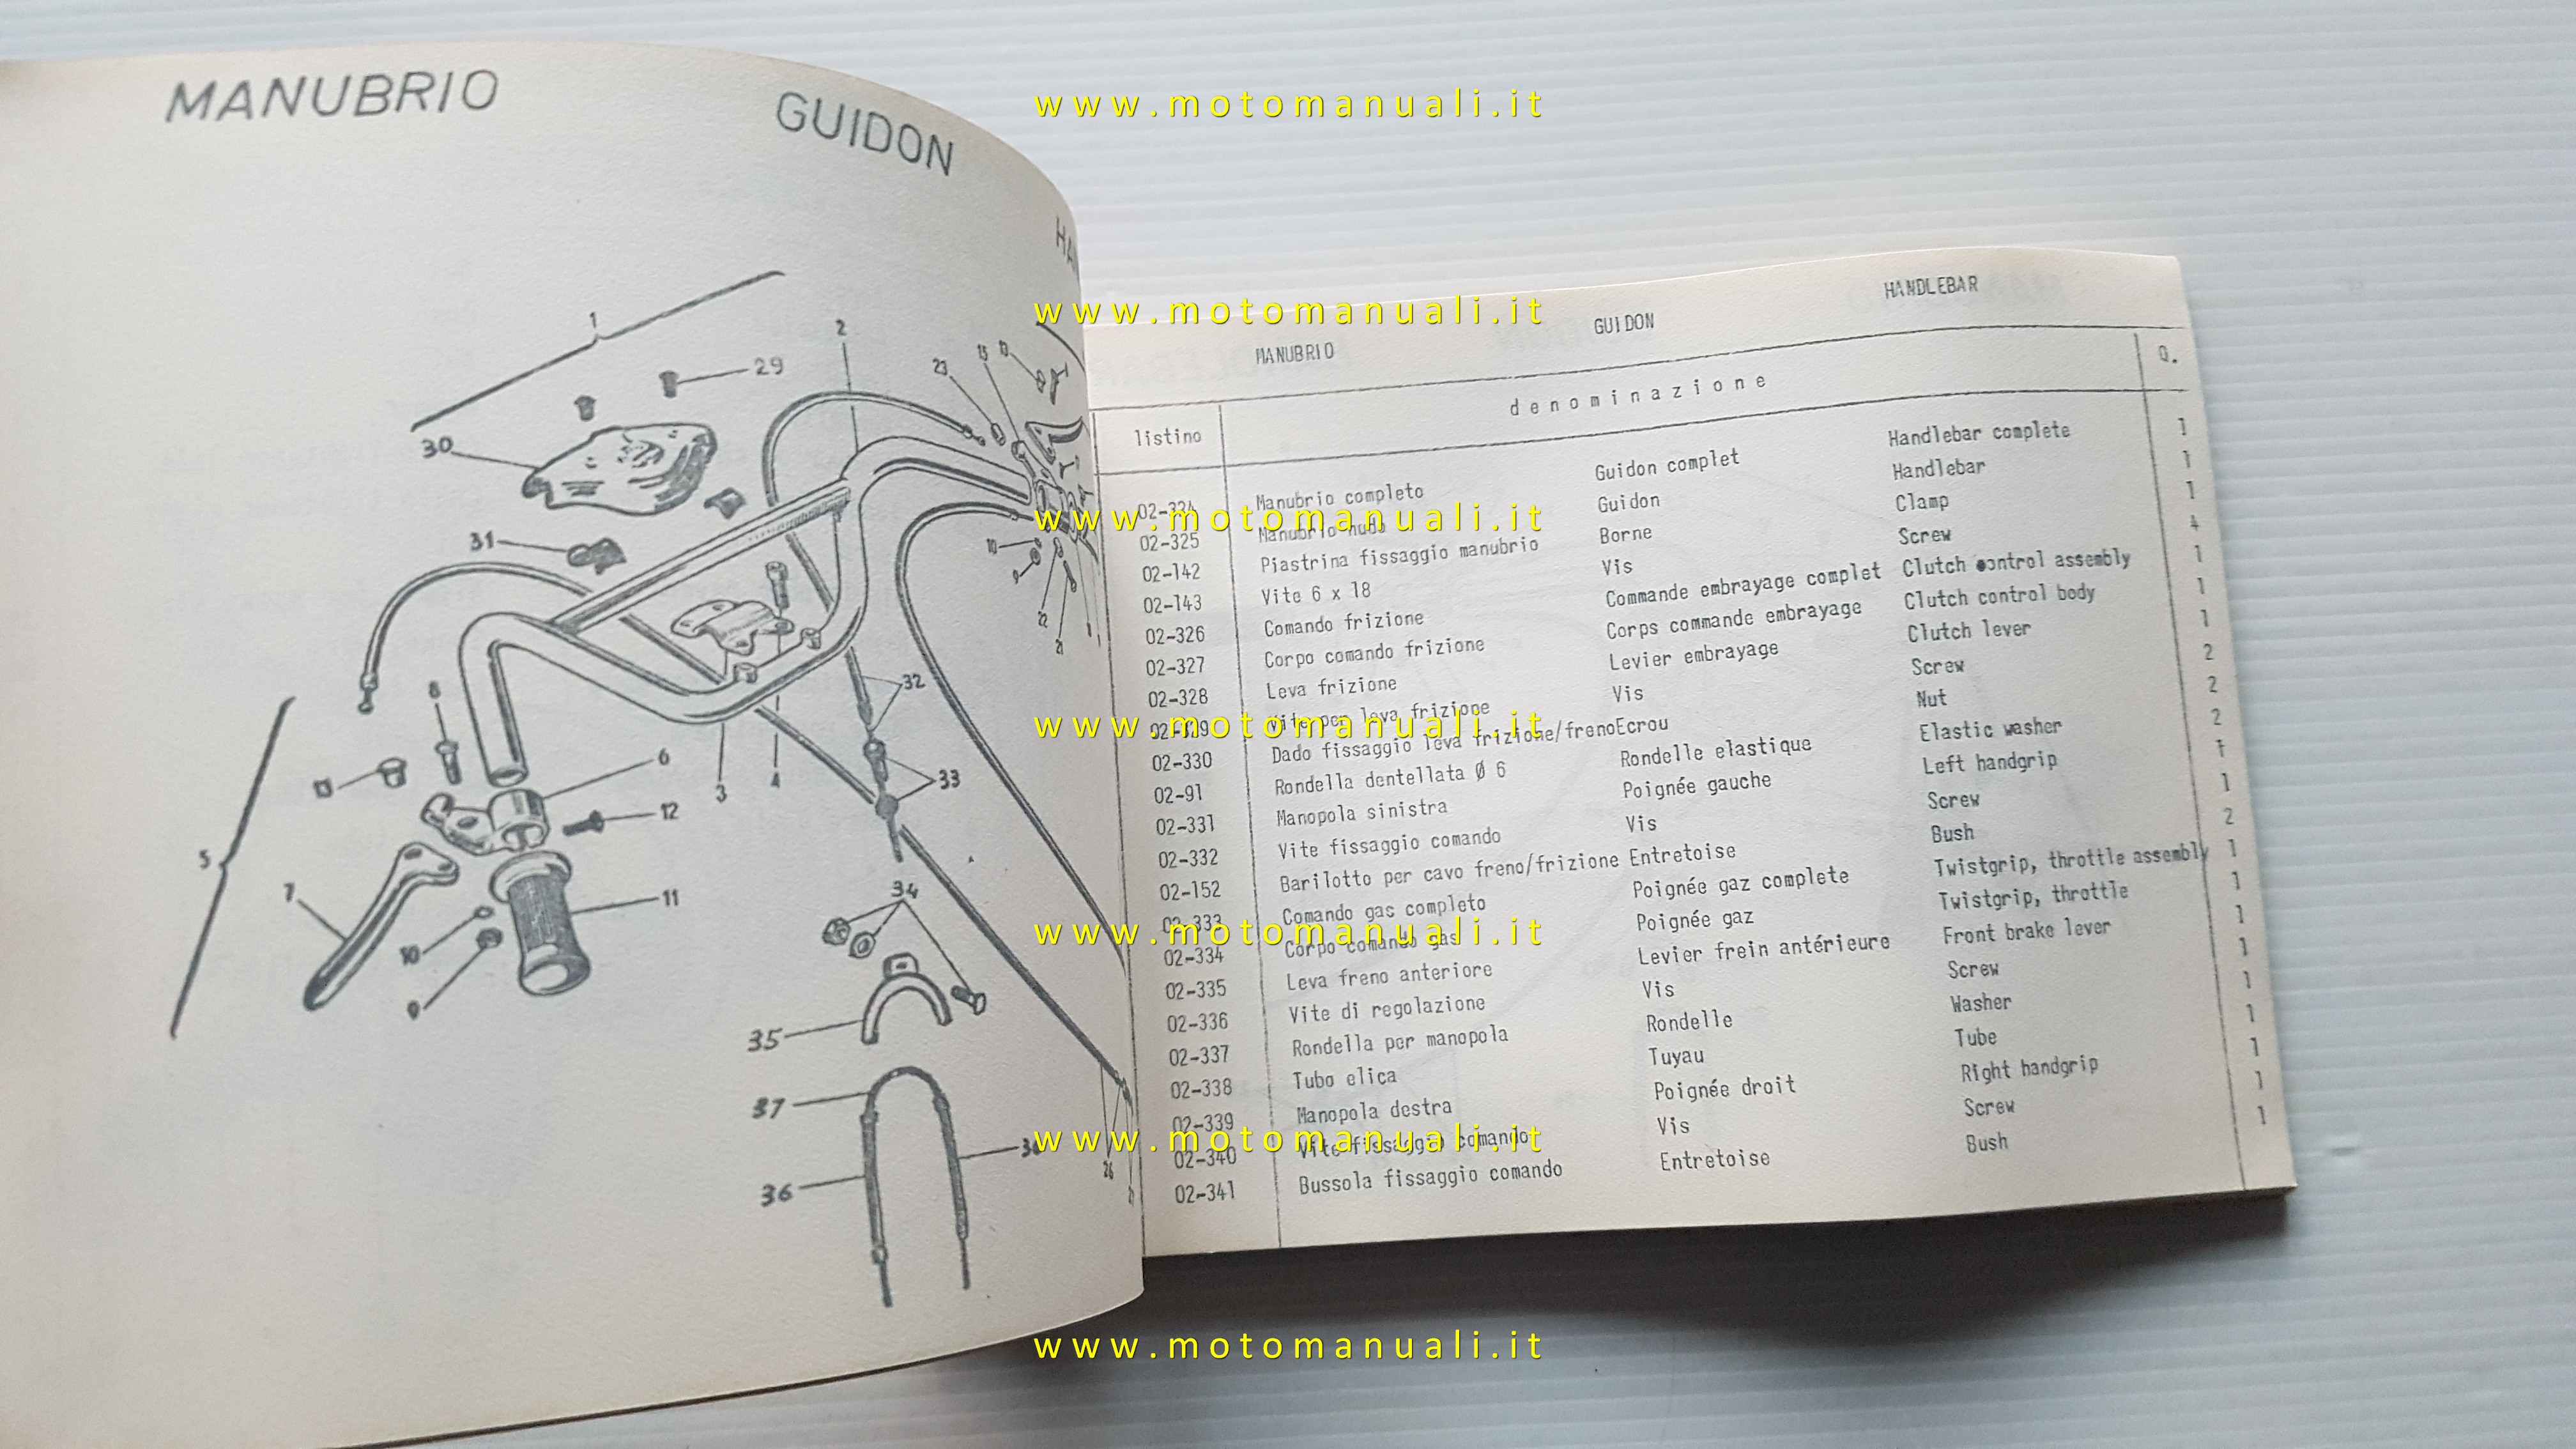 MANUBRIO GUIDON
1
2
29
30
31
23
15
13
10
9
22
21
8
32
33
3
4
6
12
5
7
11
10
9
34
35
37
36
26
MANUBRIO GUIDON HANDLEBAR
listino denominazione Q.
02-324 Manubrio completo Guidon complet Handlebar complete 1
02-325 Manubrio nudo Guidon Handlebar 1
02-142 Piastrina fissaggio manubrio Borne Clamp 1
02-143 Vite 6 x 18 Vis Screw 4
02-326 Comando frizione Commande embrayage complet Clutch control assembly 1
02-327 Corpo comando frizione Corps commande embrayage Clutch control body 1
02-328 Leva frizione Levier embrayage Clutch lever 1
02-329 Vite per leva frizione Vis Screw 2
02-330 Dado fissaggio leva frizione/freno Ecrou Nut 2
02-91 Rondella dentellata Ø 6 Rondelle elastique Elastic washer 2
02-331 Manopola sinistra Poignée gauche Left handgrip 1
02-332 Vite fissaggio comando Vis Screw 1
02-152 Barilotto per cavo freno/frizione Entretoise Bush 2
02-333 Comando gas completo Poignée gaz complete Twistgrip, throttle assembly 1
02-334 Corpo comando gas Poignée gaz Twistgrip, throttle 1
02-335 Leva freno anteriore Levier frein antérieure Front brake lever 1
02-336 Vite di regolazione Vis Screw 1
02-337 Rondella per manopola Rondelle Washer 1
02-338 Tubo elica Tuyau Tube 1
02-339 Manopola destra Poignée droit Right handgrip 1
02-340 Vite fissaggio comando Vis Screw 1
02-341 Bussola fissaggio comando Entretoise Bush 1
www.motomanuali.it
www.motomanuali.it
www.motomanuali.it
www.motomanuali.it
www.motomanuali.it
www.motomanuali.it
www.motomanuali.it